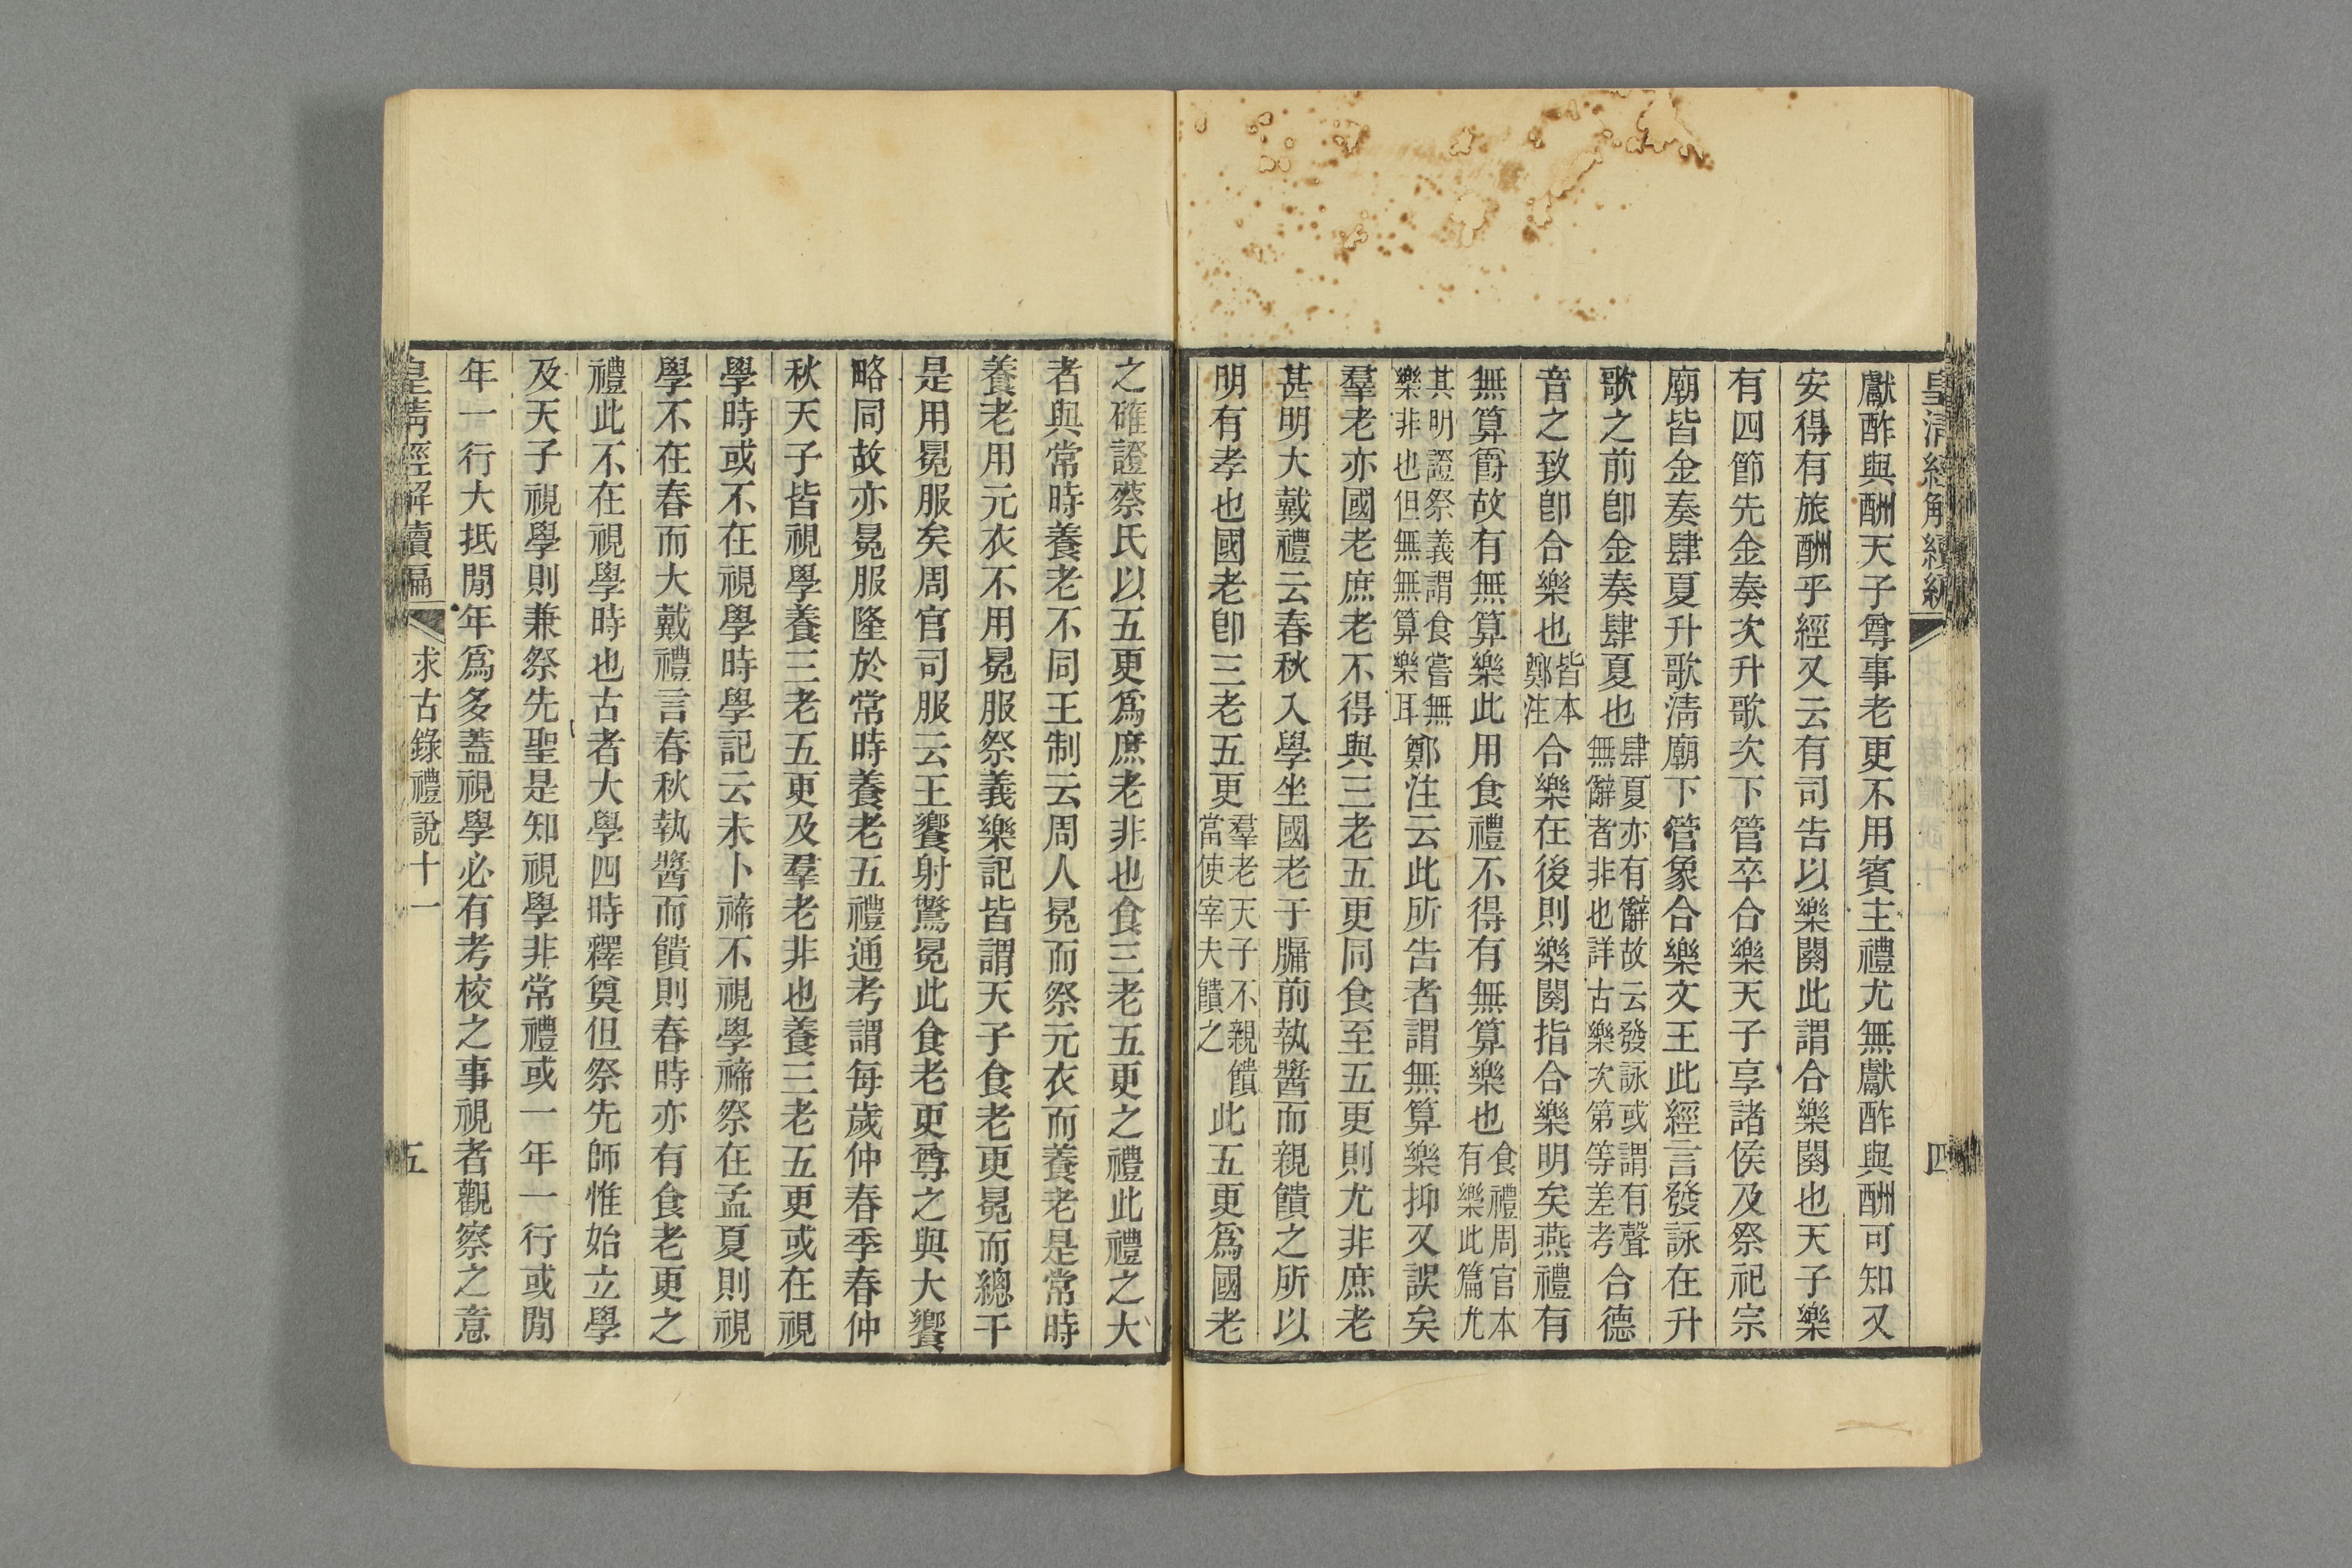 皇清經解續編 四
獻酢與酬天子尊事老更不用賓主禮尤無獻酢與酬可知又
安得有旅酬乎經又云有司告以樂闋此謂合樂闋也天子樂
有四節先金奏次升歌次下管卒合樂天子享諸侯及祭祀宗
廟皆金奏肆夏升歌淸廟下管象合樂文王此經言發詠在升
歌之前卽金奏肆夏也肆夏亦有辭故云發詠或謂有聲無辭者非也詳古樂次第等差考合德
音之致卽合樂也皆本鄭注合樂在後則樂闋指合樂明矣燕禮有
無算爵故有無算樂此用食禮不得有無算樂也食禮周官本有樂此篇尤
其明證祭義謂食嘗無樂非也但無無算樂耳鄭注云此所告者謂無算樂抑又誤矣
羣老亦國老庶老不得與三老五更同食至五更則尤非庶老
甚明大戴禮云春秋入學坐國老于牖前執醬而親饋之所以
明有孝也國老卽三老五更羣老天子不親饋當使宰夫饋之此五更爲國老
之確證蔡氏以五更爲庶老非也食三老五更之禮此禮之大
者與常時養老不同王制云周人冕而祭元衣而養老是常時
養老用元衣不用冕服祭義樂記皆謂天子食老更冕而總干
是用冕服矣周官司服云王饗射鷩冕此食老更尊之與大饗
略同故亦冕服隆於常時養老五禮通考謂每歲仲春季春仲
秋天子皆視學養三老五更及羣老非也養三老五更或在視
學時或不在視學時學記云未卜禘不視學禘祭在孟夏則視
學不在春而大戴禮言春秋執醬而饋則春時亦有食老更之
禮此不在視學時也古者大學四時釋奠但祭先師惟始立學
及天子視學則兼祭先聖是知視學非常禮或一年一行或閒
年一行大抵閒年爲多蓋視學必有考校之事視者觀察之意
皇清經解續編 求古錄禮說十一 五